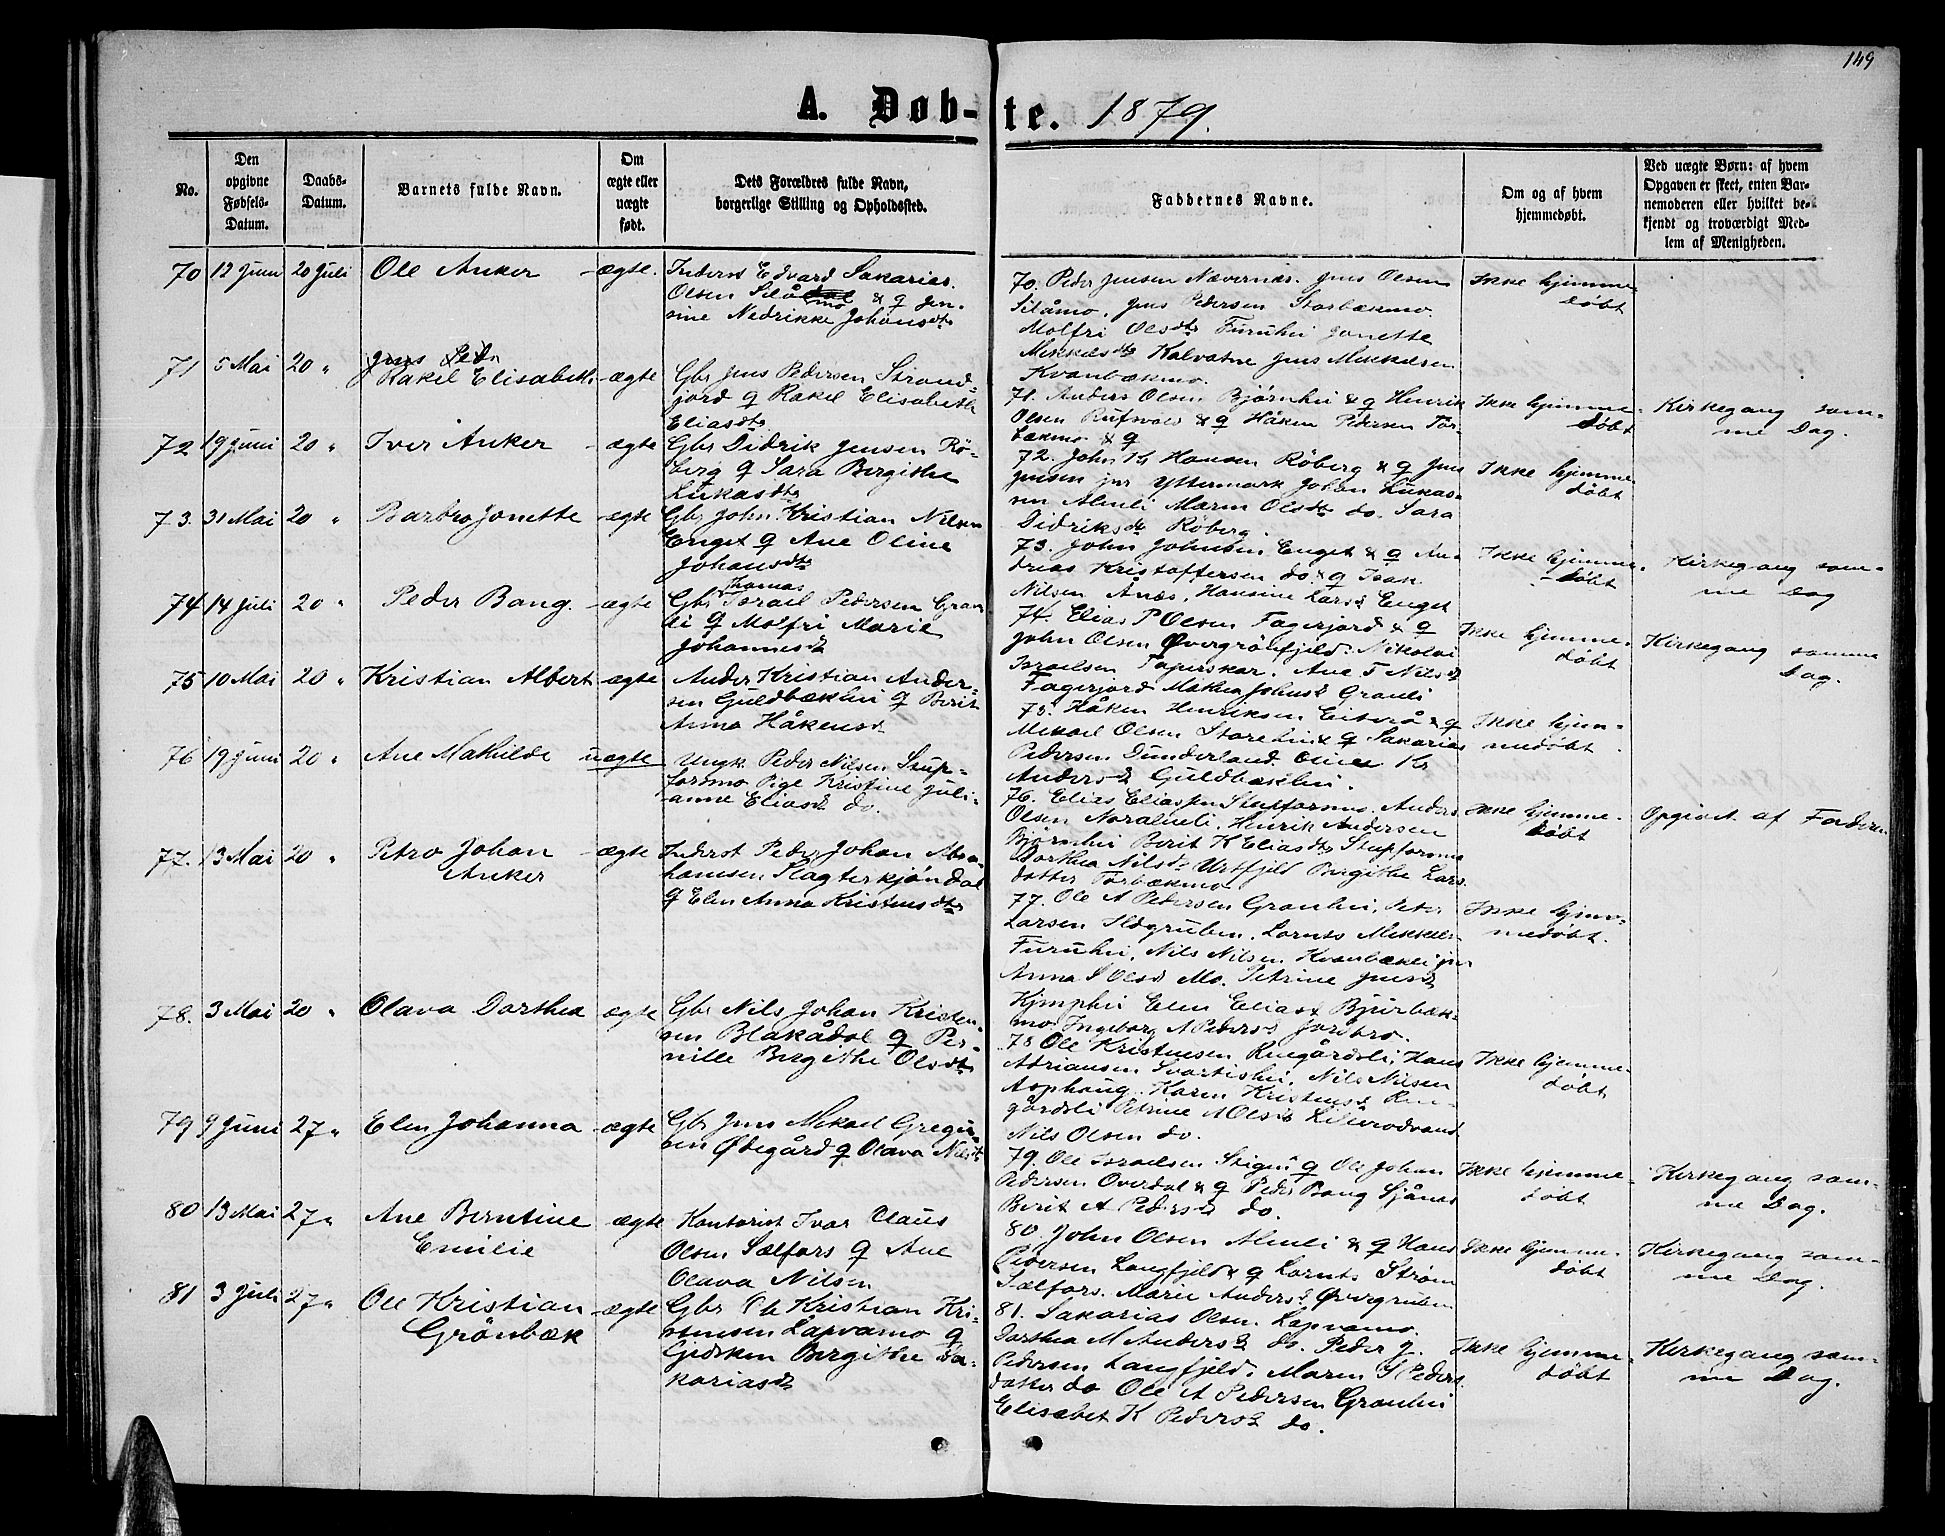 149
A. Døb-te. 1879.
No.
Den opgivne Fødsels-Datum.
Daabs-Datum.
Barnets fulde Navn.
Om ægte eller uægte født.
Dets Forældres fulde Navn, borgerlige Stilling og Opholdssted.
Faddernes Navne.
Om og af hvem hjemmedøbt.
Ved uægte Børn: af hvem Opgaven er skeet, enten Barnemoderen eller hvilket bekjendt og troværdigt Medlem af Menigheden.
70 12 Juni 20 Juli Ole Anker ægte. Inderst Edvard Sakarias
Olsen Silåmo & q Jen-
sine Nedrikke Johansdtr
70. Peder Jensen Nævernæs. Jens Olsen
Silåmo, Jens Pedersen Storbækmo.
Molfri Olsdtr Furuhei Jonette
Mikkelsdtr Kalvatne Jens Mikkelsen
Kvanbækmo.
Ikke hjemme
døbt
71 5 Mai 20 " Rakel Elisabeth ægte Gbr Jens Pedersen Strand-
jord q Rakel Elisabeth
Eliasdtr
71. Anders Olsen Bjørnhei & q Henrik
Olsen Rufsvold & q Håken Pedersen Tor-
bækmo & q
Ikke hjemme-
døbt
Kirkegang sam-
me Dag.
72 19 Juni 20 " Iver Anker ægte Gbr Didrik Jensen Rö-
berg q Sara Bergithe
Lukasdtr
72. John Kr Hansen Röberg & q Jens
Jensen jnr Yttermark Johan Lukas-
sen Almli Maren Olsdtr do. Sara
Didriksdtr Röberg.
Ikke hjemme
døbt
73. 31 Mai 20 " Barbro Jonette ægte Gbr John Kristian Nilsen
Enget q Ane Oline
Johansdtr
73. John Johnsen Enget & q An-
drias Kristoffersen do. & q Isak
Nilsen Anæs, Hansine Larsd Enget
Ikke hjemme-
døbt
Kirkegang sam-
me Dag
74 14 Juli 20 " Peder Bang. ægte Gbr Thomas Israel Pedersen Gran
li q Molfri Marie
Johannesd
74. Elias P Olsen Fagerjord & q
John Olsen Øvergrönfjeld. Nikolai
Israelsen Taperskar. Ane T Nilsd
Fagerjord Makea Johnsd Granli
Ikke hjemme-
døbt
Kirkegang samme
Dag.
75 10 Mai 20 " Kristian Albert ægte Ander Kristian Ander-
sen Guldbækhei q Berit
Anna Håkensd
75. Håken Henriksen Eiterå & q
Mikael Olsen Storehei & q Sakarias
Pedersen Dunderland Oline Kr
Andersd Guldbækhei.
Ikke hjem-
medøbt
76 19 Juni 20 " Ane Mathilde uægte Ungk Peder Nilsen Stup-
forsmo Pige Kristine Juli-
anne Eliasd do.
76. Elias Eliassen Stupforsmo, Anders
Olsen Noralieli. Henrik Andersen
Bjørnhei Berit K Eliasdtr Stupforsmo
Dorthea Nilsdtr Urtfjeld Bergithe Lars
datter Torbækmo
Ikke hjemme-
døbt
Opgivet af Faderen
77. 13 Mai 20 " Petro Johan
Anker
ægte Inderst Peder Johan Abra-
hamsen Slagterkjøndal
q Elen Anna Kristensdtr
77. Ole A Pedersen Granhei, Peter
Larsen Ildgruben. Lornts Mikkelsen
Furuhei, Nils Nilsen Kvanbækli jnr
Anna S Olsd Mo. Petrine Jensd
Kjemphei Elen Eliasd Bjurbæk-
mo Ingeborg A Pedersd Jordbro.
Ikke hjem-
medøbt.
78. 3 Mai 20 " Olava Dorthea ægte Gbr Nils Johan Kristen-
sen Blakådal q Per-
nille Bergithe Olsdtr
78 Ole Kristensen Ringårdsli, Hans
Adriansen Svartishei, Nils Nilsen
Asphaug. Karen Kristensd Rin-
gårdsli Petrine A Olsd
Nils Olsen do.
Ikke hjemme-
døbt
79 9 Juni 27 " Elen Johanna ægte Gbr Jens Mikael Gregu-
sen Ødegård q Olava Nilsdtr
79. Ole Israelsen Stigen q Ole Johan
Pedersen Overdal & q Peder Bang Sjånæs
Berit A Pedersd do.
Ikke hjemme-
døbt
Kirkegang sam-
me Dag.
80 13 Mai 27 " Ane Berntine
Emilie
ægte Kontorist Ivar Claus
Olsen Sælfors q Ane
Olava Nilsen
80 John Olsen Almli & q Hans
Pedersen Langfjeld & q Lornts Strøm
Sælfors. Marie Andersd Øvergruben
Ikke hjemme-
døbt
Kirkegang sam-
me Dag.
81 3 Juli 27 " Ole Kristian
Grönbæk
ægte Gbr Ole Kristian Kri-
stensen Lapvamo q
Gjedsken Bergithe Sa-
kariasd
81. Sakarias Olsen Lapvamo.
Dorthea M Andersd do. Peder J.
Pedersen Langfjeld. Maren S Peders
datter do Ole A Pedersen Granhei
Elisabet K Pedersd do.
Ikke hjemme-
døbt
Kirkegang sam-
me Dag.